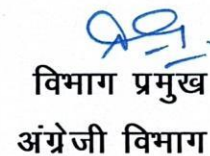 विभाग प्रमुख
अंग्रेजी विभाग